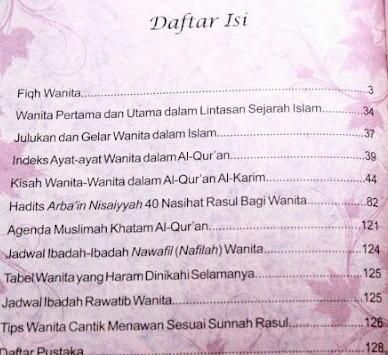 Daftar Isi
Fiqh Wanita....................................................................3
Wanita Pertama dan Utama dalam Lintasan Sejarah Islam..............34
Julukan dan Gelar Wanita dalam Islam....................................37
Indeks Ayat-ayat Wanita dalam Al-Qur'an.................................39
Kisah Wanita-Wanita dalam Al-Qur'an Al-Karim...........................44
Hadits Arba'in Nisaiyyah 40 Nasihat Rasul Bagi Wanita................82
Agenda Muslimah Khatam Al-Qur'an.......................................121
Jadwal Ibadah-Ibadah Nawafil (Nafilah) Wanita.........................124
Tabel Wanita yang Haram Dinikahi Selamanya............................125
Jadwal Ibadah Rawatib Wanita............................................125
Tips Wanita Cantik Menawan Sesuai Sunnah Rasul......................126
Daftar Pustaka..............................................................128